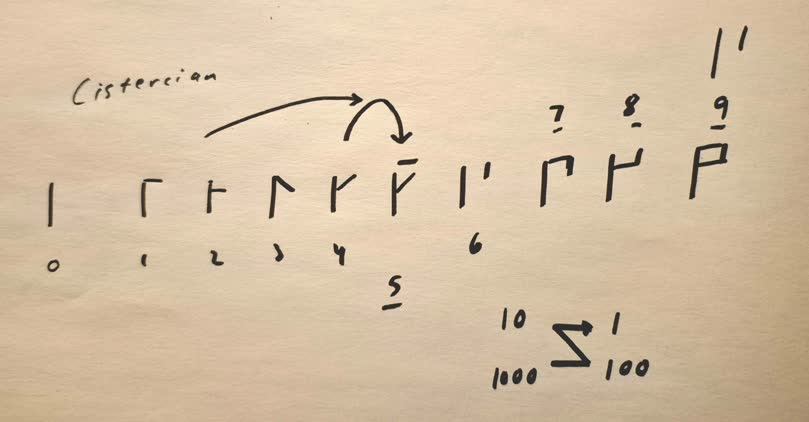 Cistercian
7 8 9
0 1 2 3 4 6
5
10 1
1000 100